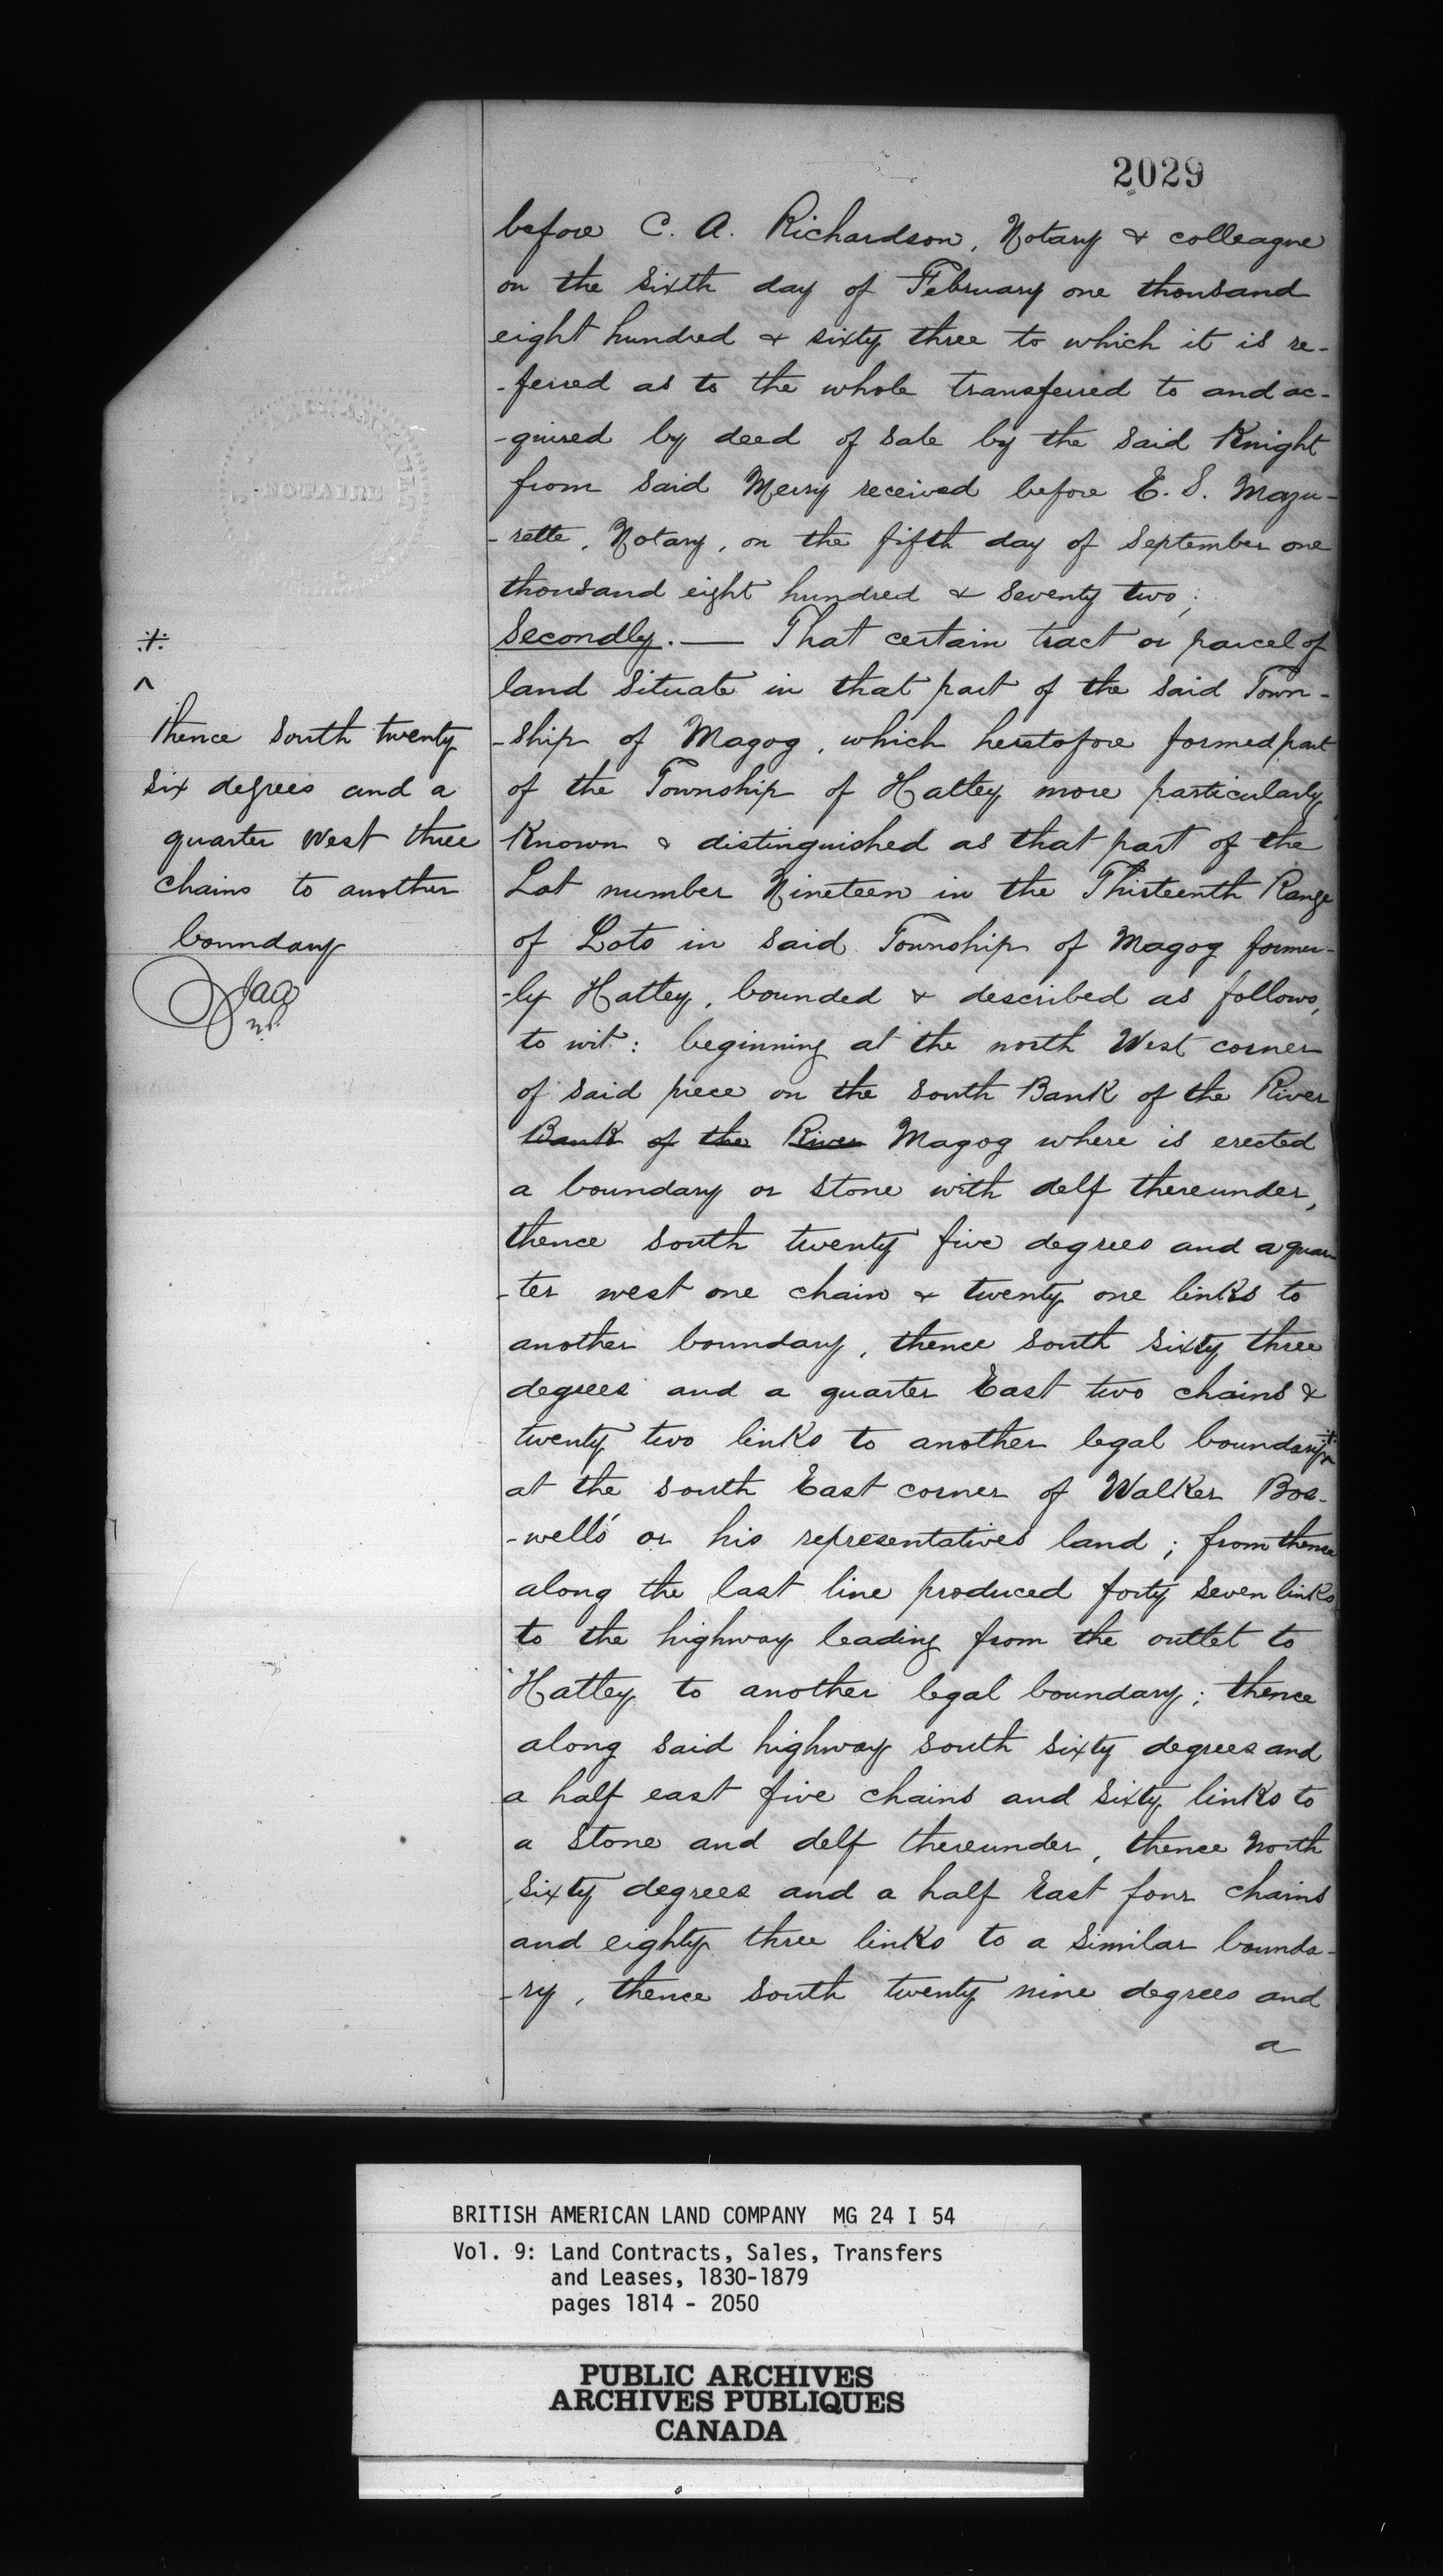 2029
before C. A. Richardson, Notary & colleague
on the sixth day of February one thousand
eight hundred & sixty three to which it is re-
-ferred as to the whole transferred to and ac-
-quired by deed of sale by the said Knight
from said Merry received before E. S. Mazu-
-rette, Notary, on the fifth day of September one
thousand eight hundred & seventy two;
Secondly. — That certain tract or parcel of
land situate in that part of the said Town-
-ship of Magog, which heretofore formed part
of the Township of Hatley more particularly
Known & distinguished as that part of the
Lot number Nineteen in the Thirteenth Range
of Lots in said Township of Magog former-
-ly Hatley, bounded & described as follows,
to wit: beginning at the north West corner
of said piece on the south Bank of the River
Bank of the River Magog where is erected
a boundary or stone with delf thereunder,
thence south twenty five degrees and a quar-
-ter west one chain & twenty one links to
another boundary, thence south sixty three
degrees and a quarter East two chains &
twenty two links to another legal boundary
at the south East corner of Walker Bos-
-well's or his representatives land; from thence
along the last line produced forty seven links
to the highway leading from the outlet to
Hatley to another legal boundary; thence
along said highway south sixty degrees and
a half east five chains and sixty links to
a stone and delf thereunder, thence North
sixty degrees and a half East four chains
and eighty three links to a similar bounda-
-ry, thence south twenty nine degrees and
a
thence south twenty
six degrees and a
quarter West three
chains to another
boundary
NOTAIRE
BRITISH AMERICAN LAND COMPANY MG 24 I 54
Vol. 9: Land Contracts, Sales, Transfers
and Leases, 1830-1879
pages 1814 - 2050
PUBLIC ARCHIVES
ARCHIVES PUBLIQUES
CANADA